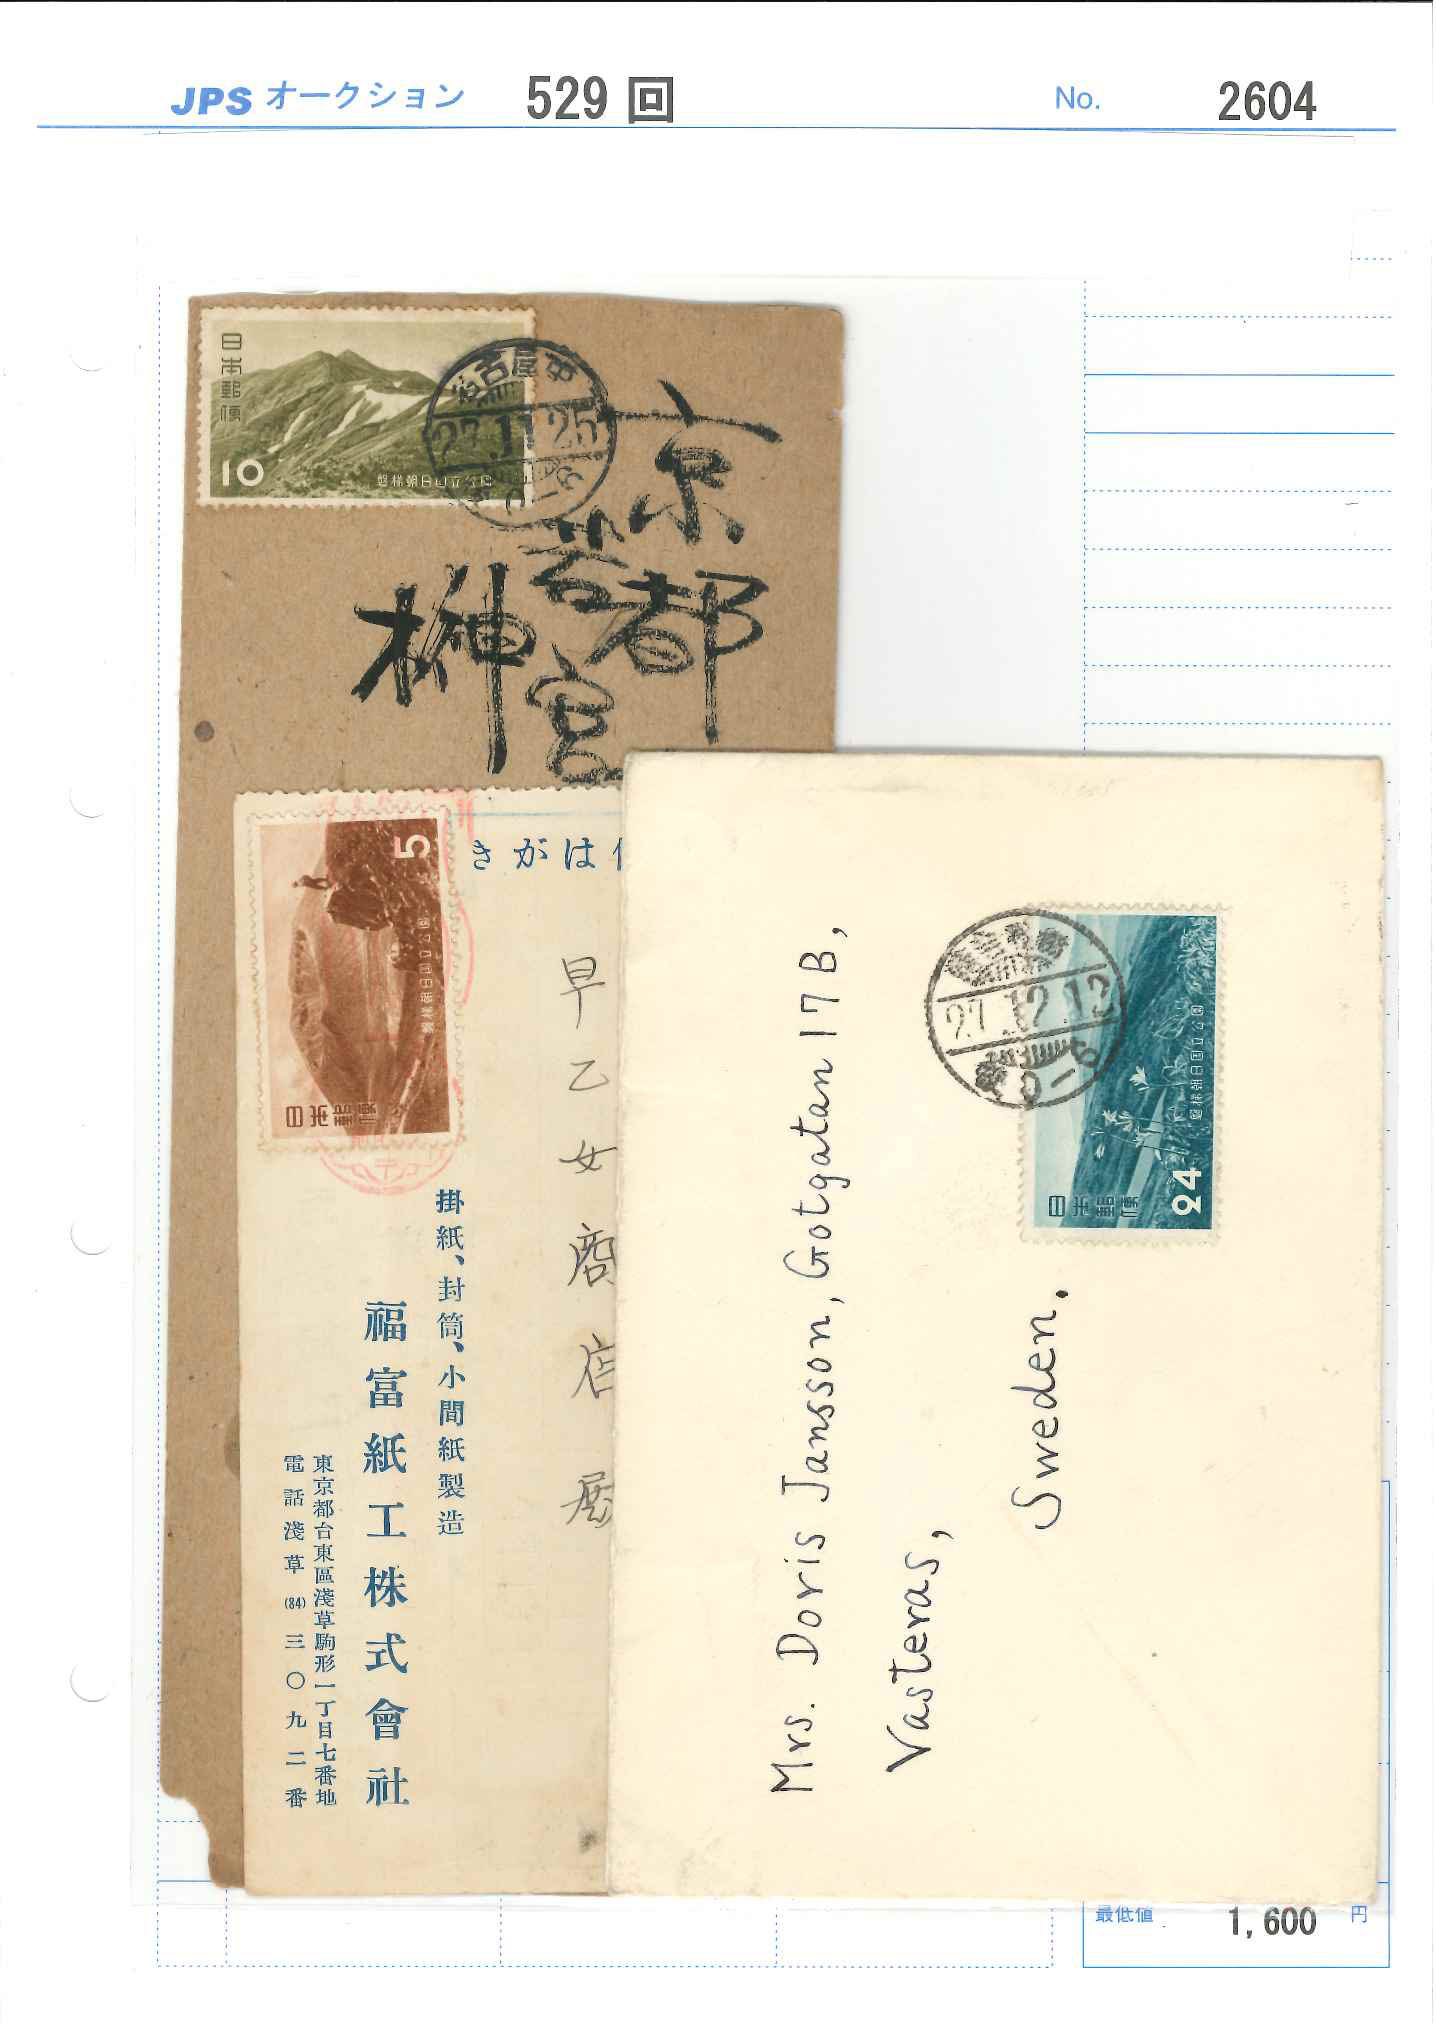 JPS オークション 529 回 No. 2604
日本郵便
10
磐梯朝日国立公園
名古屋中
27.11.25
京都
宮
5
磐梯朝日国立公園
日本郵便
きがは
早乙女商店
掛紙、封筒、小間紙製造
福富紙工株式會社
東京都台東區淺草駒形一丁目七番地
電話淺草(84)三〇九二番
27.12.12
磐梯朝日国立公園
日本郵便
24
Mrs. Doris Jansson, Gotgatan 17 B,
Vasteras,
Sweden.
最低値 1,600 円